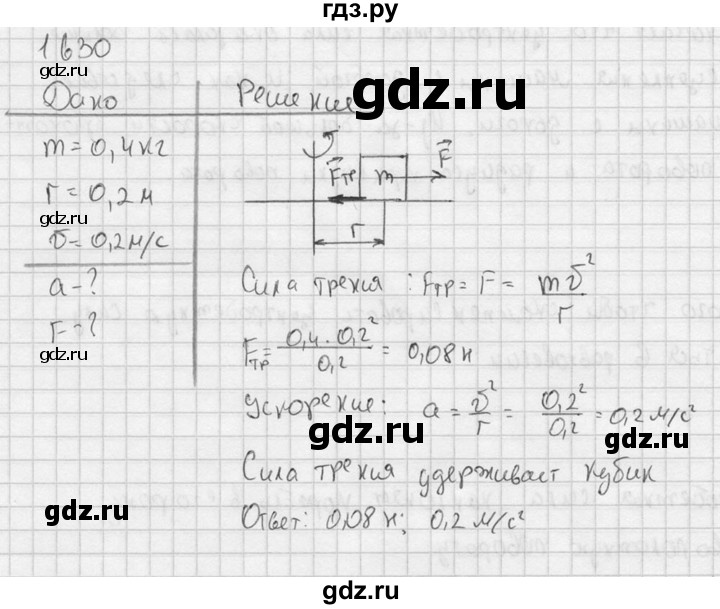 гдз.ру
1630
gdz.ru
Дано
Решение
gdz.ru
m = 0,4 кг
r = 0,2 м
gdz.ru
υ = 0,2 м/с
a - ?
F - ?
gdz.ru
Fтр m F
r
Сила трения : Fтр = F = mυ²/r
Fтр = 0,4 · 0,2²/0,2 = 0,08 н
Ускорение: a = υ²/r = 0,2²/0,2 = 0,2 м/с²
gdz.ru
gdz.ru
Сила трения удерживает кубик
gdz.ru
gdz.ru
Ответ: 0,08 н; 0,2 м/с²
gdz.ru